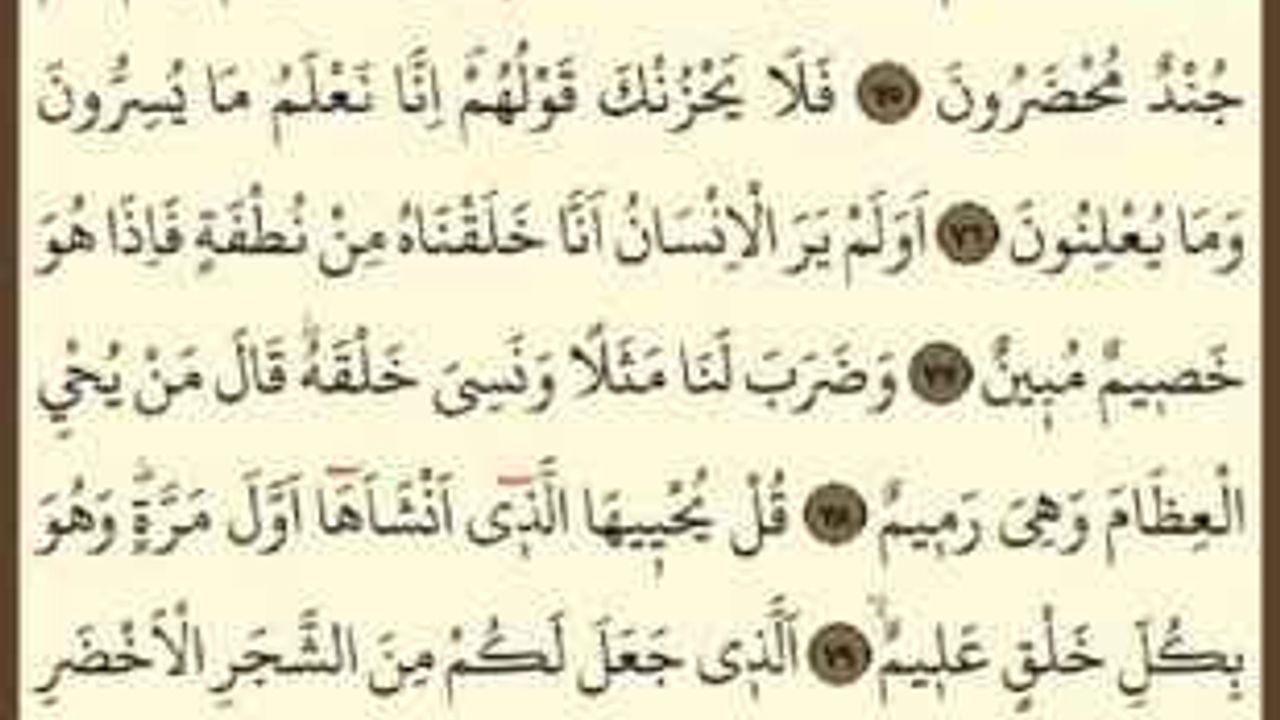 جُنْدٌ مُحْضَرُونَ ﴿٧٥﴾ فَلَا يَحْزُنْكَ قَوْلُهُمْۢ اِنَّا نَعْلَمُ مَا يُسِرُّونَ
وَمَا يُعْلِنُونَ ﴿٧٦﴾ اَوَلَمْ يَرَ الْاِنْسَانُ اَنَّا خَلَقْنَاهُ مِنْ نُطْفَةٍ فَاِذَا هُوَ
خَصِيمٌ مُبِينٌ ﴿٧٧﴾ وَضَرَبَ لَنَا مَثَلًا وَنَسِىَ خَلْقَهُۜ قَالَ مَنْ يُحْيِ
الْعِظَامَ وَهِىَ رَمِيمٌ ﴿٧٨﴾ قُلْ يُحْيِيهَا الَّذِٓى اَنْشَاَهَٓا اَوَّلَ مَرَّةٍۜ وَهُوَ
بِكُلِّ خَلْقٍ عَلِيمٌۙ ﴿٧٩﴾ اَلَّذِى جَعَلَ لَكُمْ مِنَ الشَّجَرِ الْاَخْضَرِ